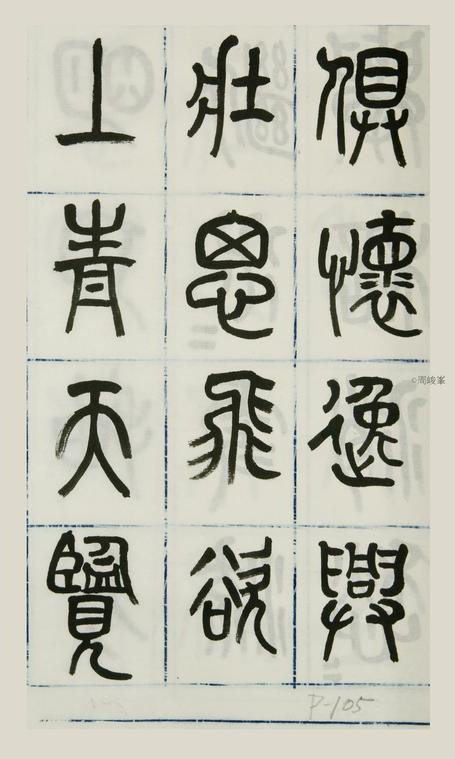 俱懷逸興
壯思飛欲
上青天覽
©周峻峯
P-105